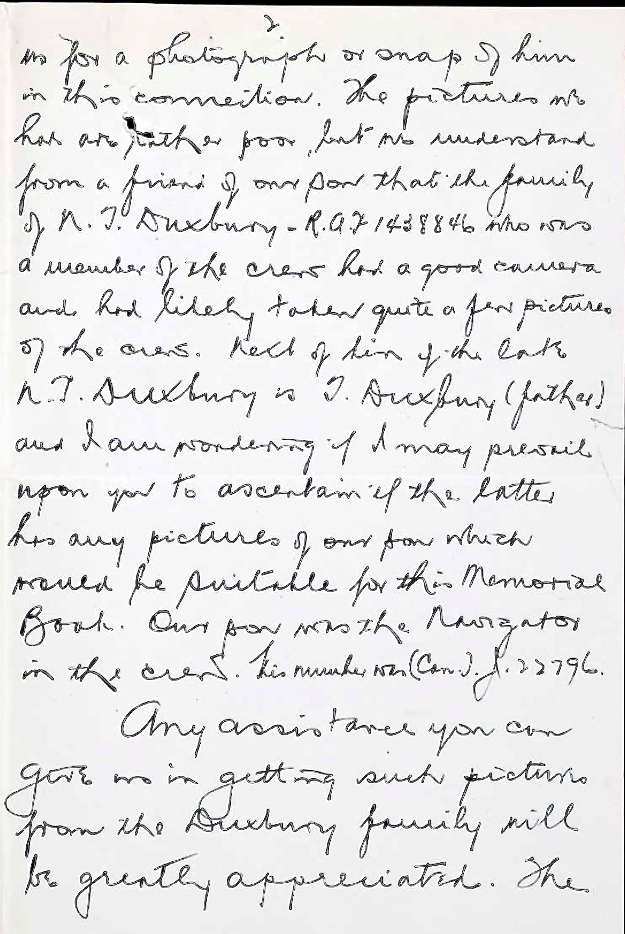 2
us for a photograph or snap of him
in this connection. The pictures we
have are rather poor, but we understand
from a friend of our son that the family
of N. T. Duxbury - R.A.F 1438846 who was
a member of the crew had a good camera
and had likely taken quite a few pictures
of the crew. Next of kin of the late
N. T. Duxbury is T. Duxbury (father)
and I am wondering if I may prevail
upon you to ascertain if the latter
has any pictures of our son which
would be suitable for this Memorial
Book. Our son was the Navigator
in the crew. His number was (Can.) J. 22796.
Any assistance you can
give us in getting such pictures
from the Duxbury family will
be greatly appreciated. The